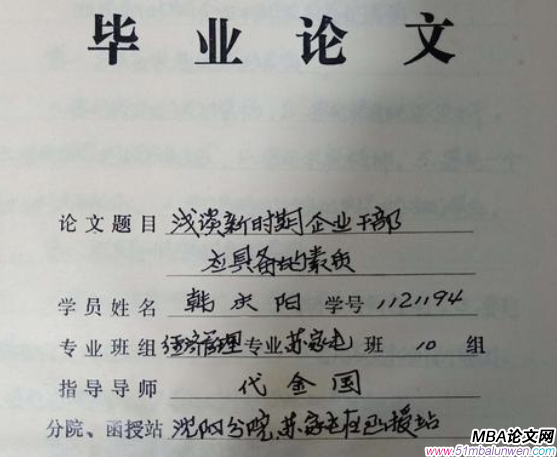 毕业论文
论文题目 浅谈新时期企业干部
应具备的素质
学员姓名 韩庆阳 学号 1121194
专业班组 经济管理专业苏家屯班 10 组
指导导师 代金国
分院、函授站 沈阳分院苏家屯区函授站
MBA论文网
www.51mbalunwen.com